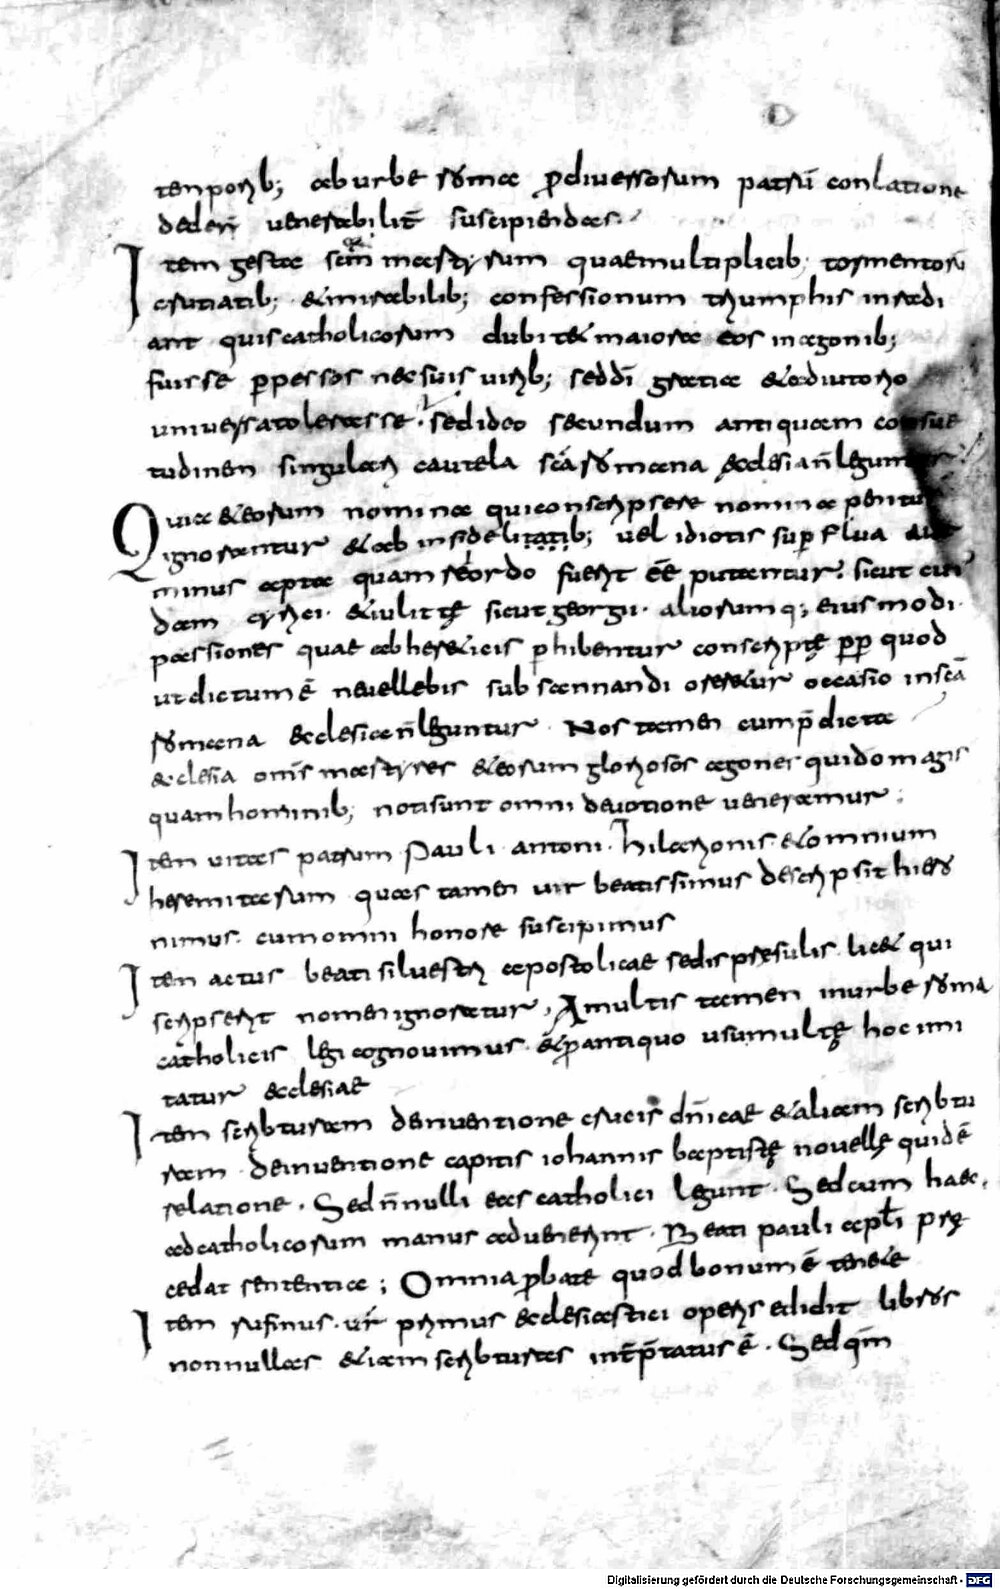 temporib; ab urbe roma p diversorum patrū conlatione
dedeř venerabilit̄ suscipiendas
Item gesta scōr̄ martyrum quae multiplicib; tormentorū
cruciatib; & mirabilib; confessionum triumphis inradi
ant quis catholicorum dubit& maiora eos in agonib;
fuisse ppessos nec suis virib; sed dī gratia & adiutorio
universa tolerasse. sed ideo secundum antiquam consue
tudinem singulari cautela scā romana ecclesia n̄ leguntur
Quia & eorum nomina qui conscripsere nomina penitus
ignorantur & ab infidelitatib; vel idiotis supflua aut
minus apta quam rei ordo fuerit eē putantur. sicut cui
dam cyrici. & iulittę sicut georgii. aliorumq; eiusmodi.
passiones quae ab her&icis phibentur conscriptę pp quod
ut dictum ē ne vel lebis subsannandi orer&ur occasio in scā
romana ecclesia n̄ leguntur. Nos tamen cum p̄dicta
ecclesia omīs martyres & eorum gloriosos agones qui dō magis
quam hominib; noti sunt omni devotione veneramur;
Item vitas patrum. pauli. antoni. hilarionis. & omnium
heremitarum quas tamen vir beatissimus descripsit hiero
nimus. cum omni honore suscipimus
Item actus beati silvestri apostolicae sedis pręsulis. lic& qui
scripserit nomen ignoratur, A multis tamen in urbe roma
catholicis legi cognovimus. & p antiquo usu multę hoc imi
tatur ecclesiae
Item scribturam de inventione crucis dn̄icae & aliam scribtu
ram. de inventione capitis iohannis baptistę novellę quidē
relatione. Sed n̄nulli eas catholici legunt. Sed cum haec.
ad catholicorum manus advenerint. Beati pauli apl̄i prę
cedat sententia; Omnia pbate quod bonum ē tenete
Item rufinus. vir primus ecclesiastici operis edidit libros
nonnullas &iam scribturas int̄p̄tatus ē. Sed qm̄
Digitalisierung gefördert durch die Deutsche Forschungsgemeinschaft - DFG